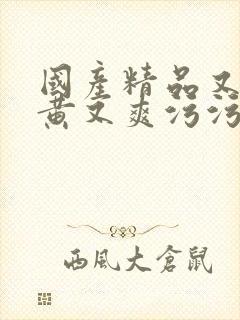 國產精品又
黃又爽污污
西風大倉鼠